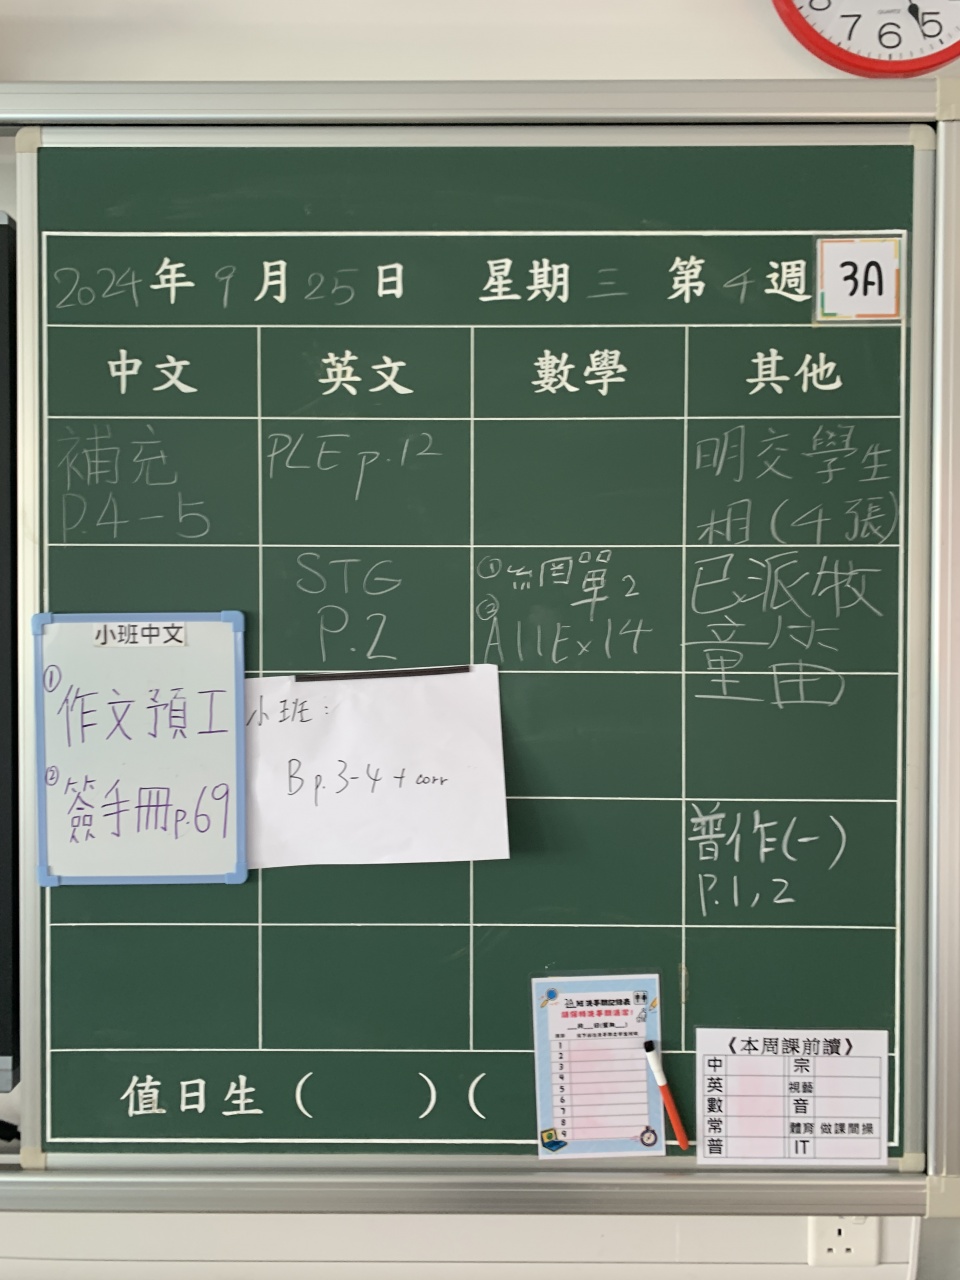 7 6 5
2024年 9月 25日 星期三 第4週 3A
中文 英文 數學 其他
補充
P.4-5
PLE p.12
明交學生
相(4張)
STG
P.2
① 網單2
② A11Ex14
已派牧
童
小班中文
① 作文預工
② 簽手冊p.69
小班：
B p.3-4 + corr
普作(一)
P.1,2
值日生（ ）（
1
2
3
4
5
6
7
8
9
《本周課前讀》
中 宗
英 視藝
數 音
常 體育 做課間操
普 IT